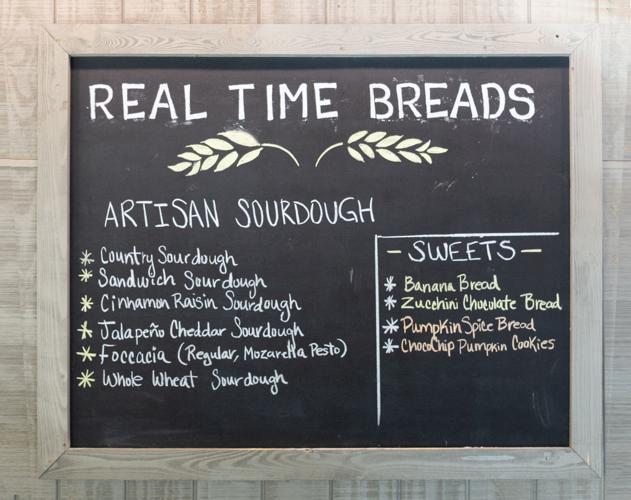 REAL TIME BREADS
ARTISAN SOURDOUGH
Country Sourdough
Sandwich Sourdough
Cinnamon Raisin Sourdough
Jalapeño Cheddar Sourdough
Foccacia (Regular, Mozarella Pesto)
Whole Wheat Sourdough
- SWEETS -
Banana Bread
Zucchini Chocolate Bread
Pumpkin Spice Bread
ChocoChip Pumpkin Cookies